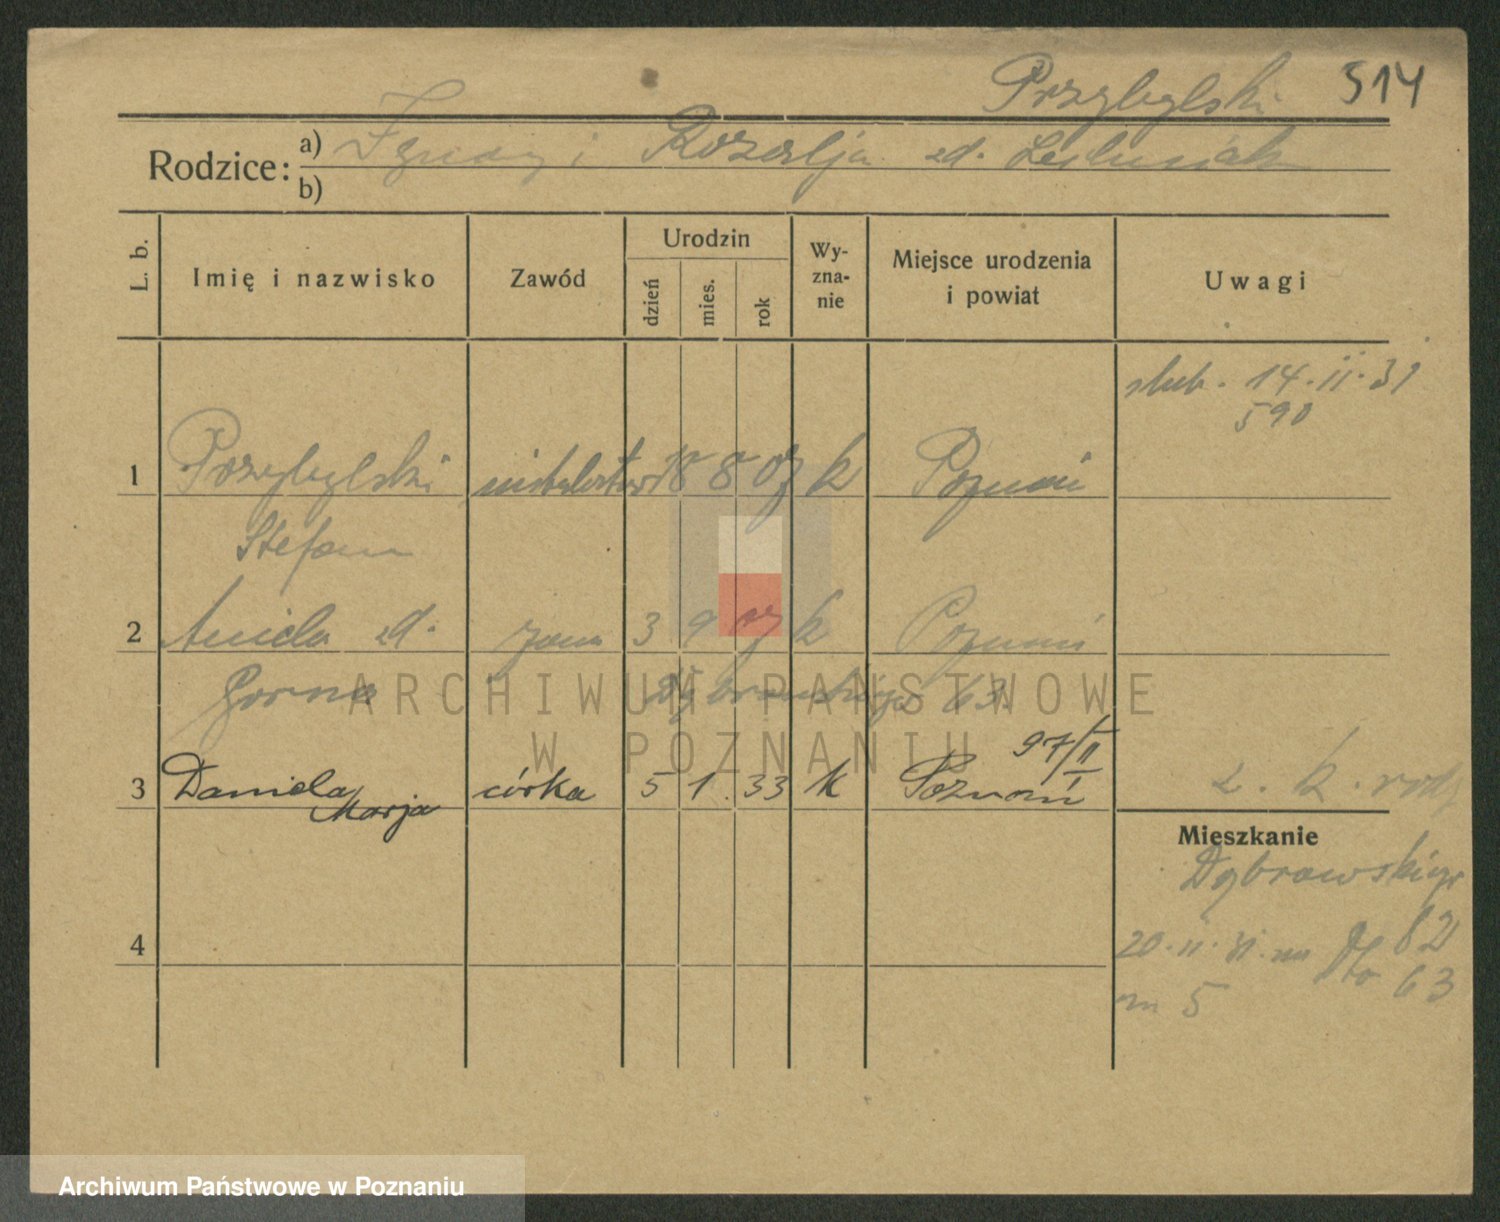 Przybylski 514
Rodzice: a) Ignacy i Rozalja zd.
b)
L. b. Imię i nazwisko Zawód Urodzin dzień mies. rok Wy-zna-nie Miejsce urodzenia i powiat Uwagi
slub. 14.II.31
590
1 Przybylski 18 8 07 k Poznań
Stefan
2 Aniela zd. żona 3 9 k Poznań
Gorna Dąbrowskiego 63.
ARCHIWUM PAŃSTWOWE
W POZNANIU
97/II
3 Daniela Marja córka 5 1. 33 k Poznań
2. k. rodz
Mieszkanie
Dąbrowskiego
82
4 20.II.31. na Dto 63
m 5
Archiwum Państwowe w Poznaniu